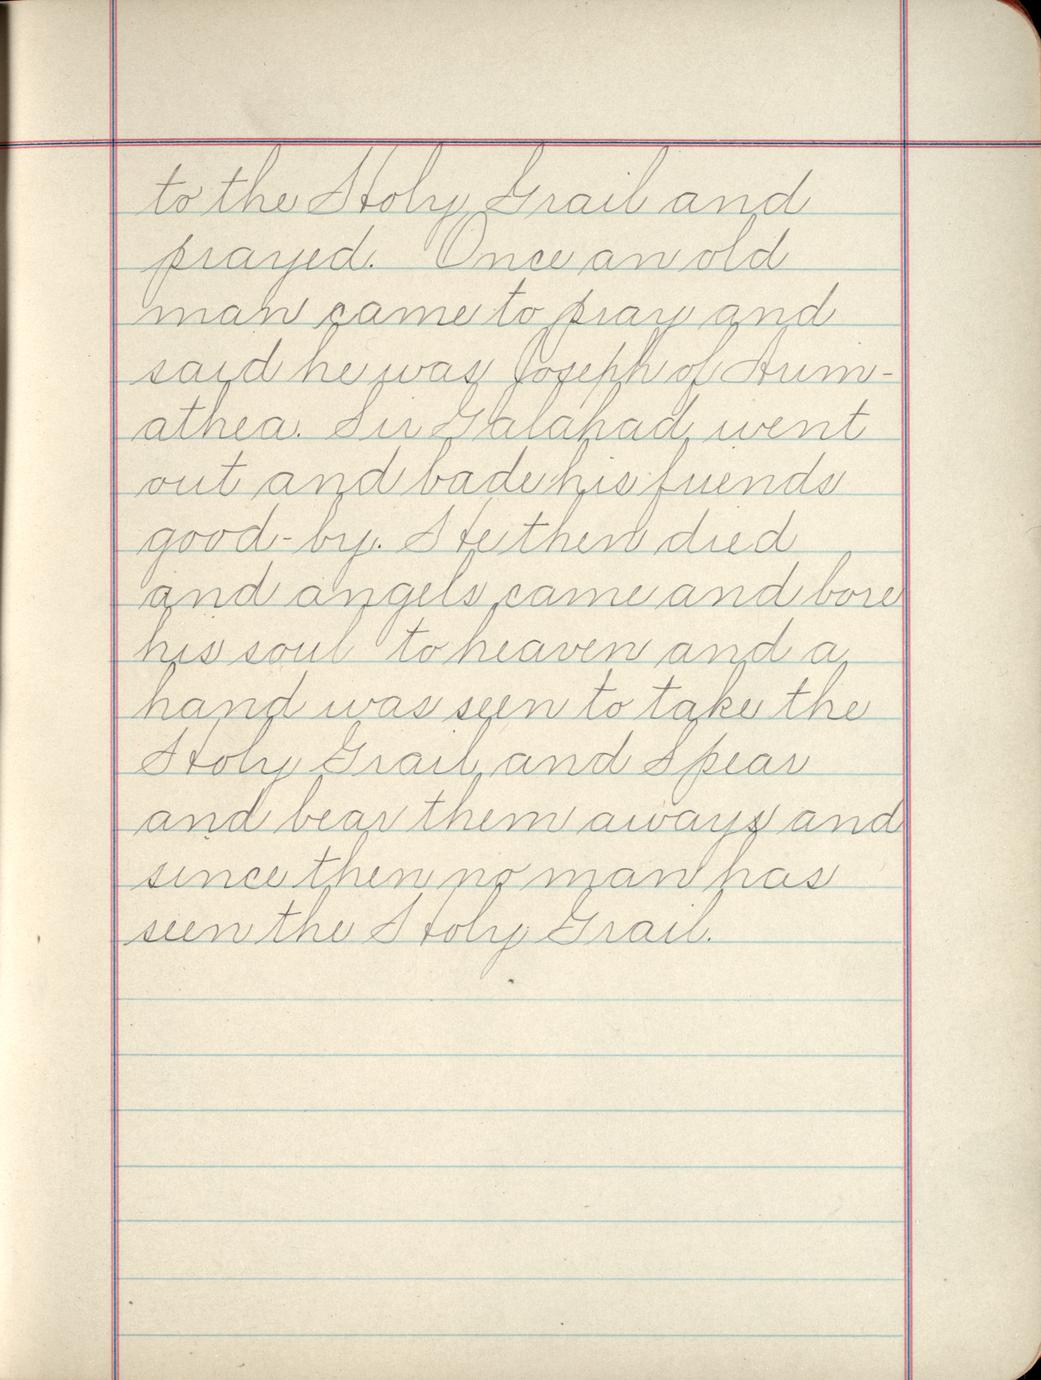 to the Holy Grail and
prayed. Once an old
man came to pray and
said he was Joseph of Arim-
athea. Sir Galahad went
out and bade his friends
good-by. He then died
and angels came and bore
his soul to heaven and a
hand was seen to take the
Holy Grail and Spear
and bear them aways and
since then no man has
seen the Holy Grail.